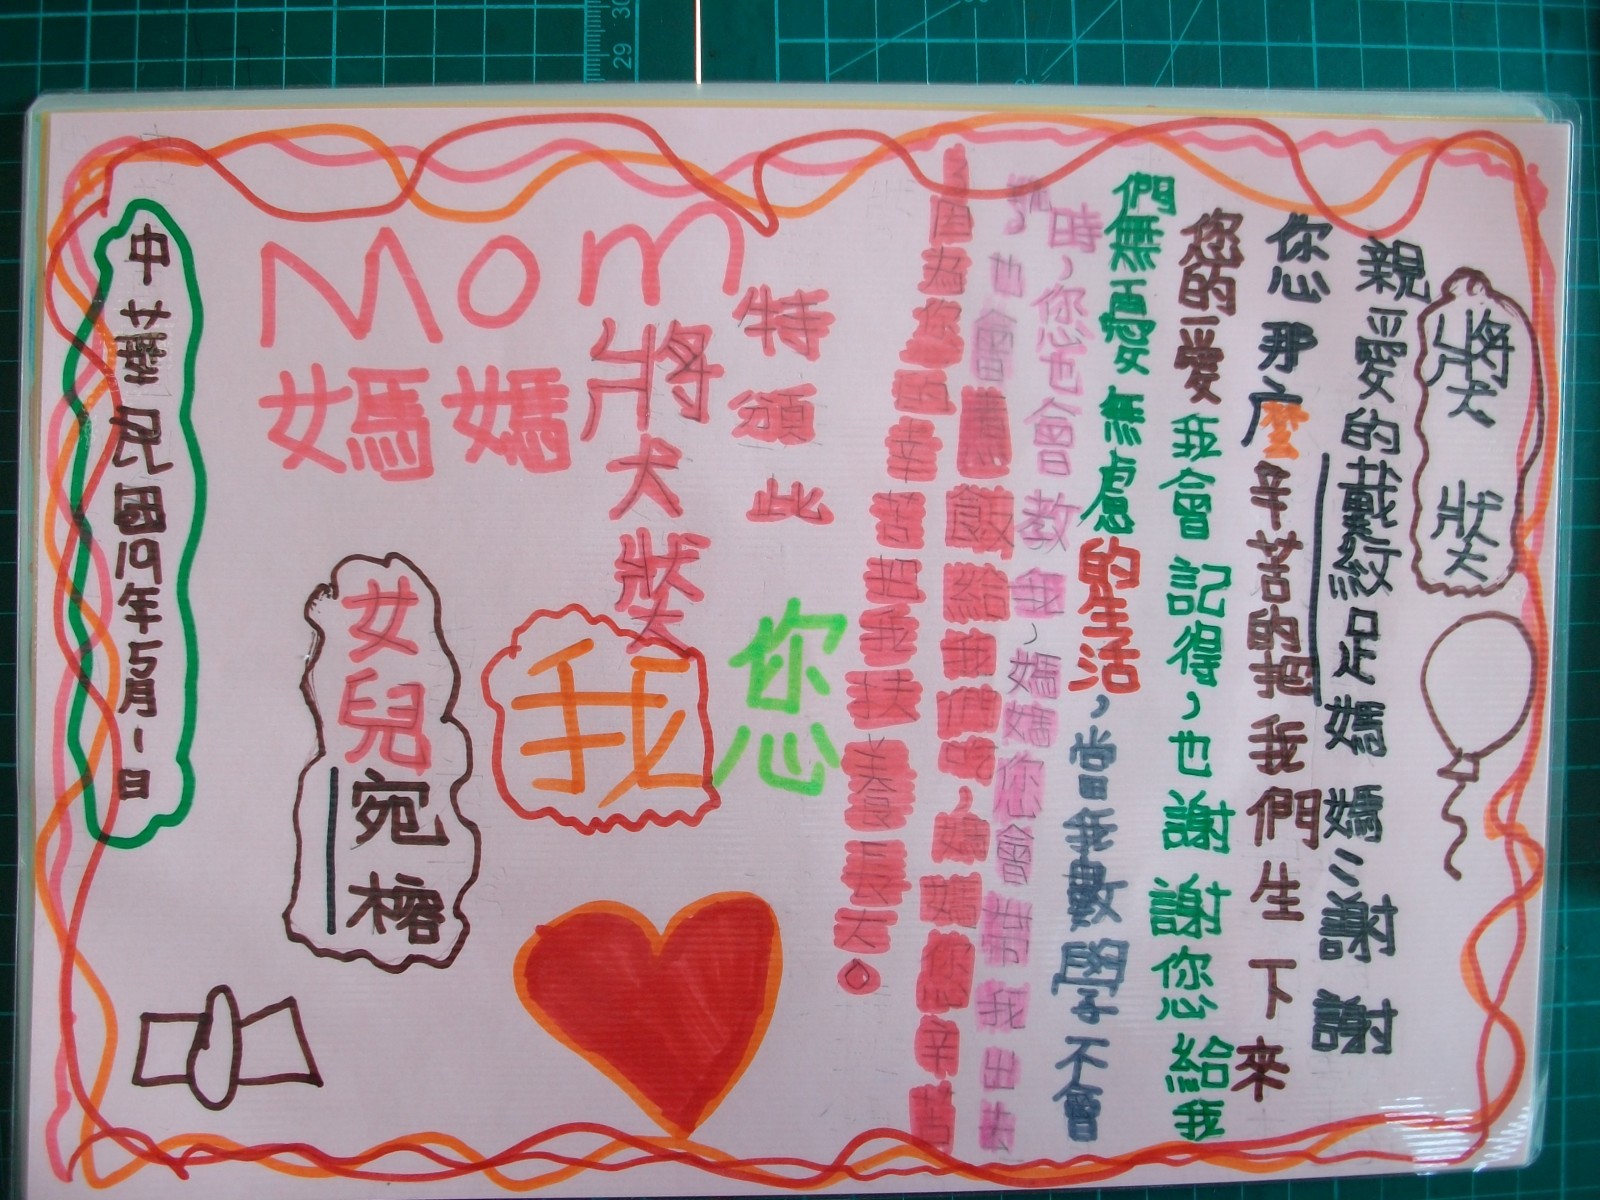 獎狀
親愛的戴紋足媽媽ミ謝謝
您那麼辛苦的把我們生下來
您的愛我會記得，也謝謝您給我
們無憂無慮的生活，當我數學不會
時，您也會教我，媽媽您會帶我出去
玩，也會煮飯給我們吃，媽媽您辛苦
了因為您辛苦把我扶養長大。
特頒此
獎狀
您
我
Mom
媽媽
女兒宛榕
中華民國19年5月1日